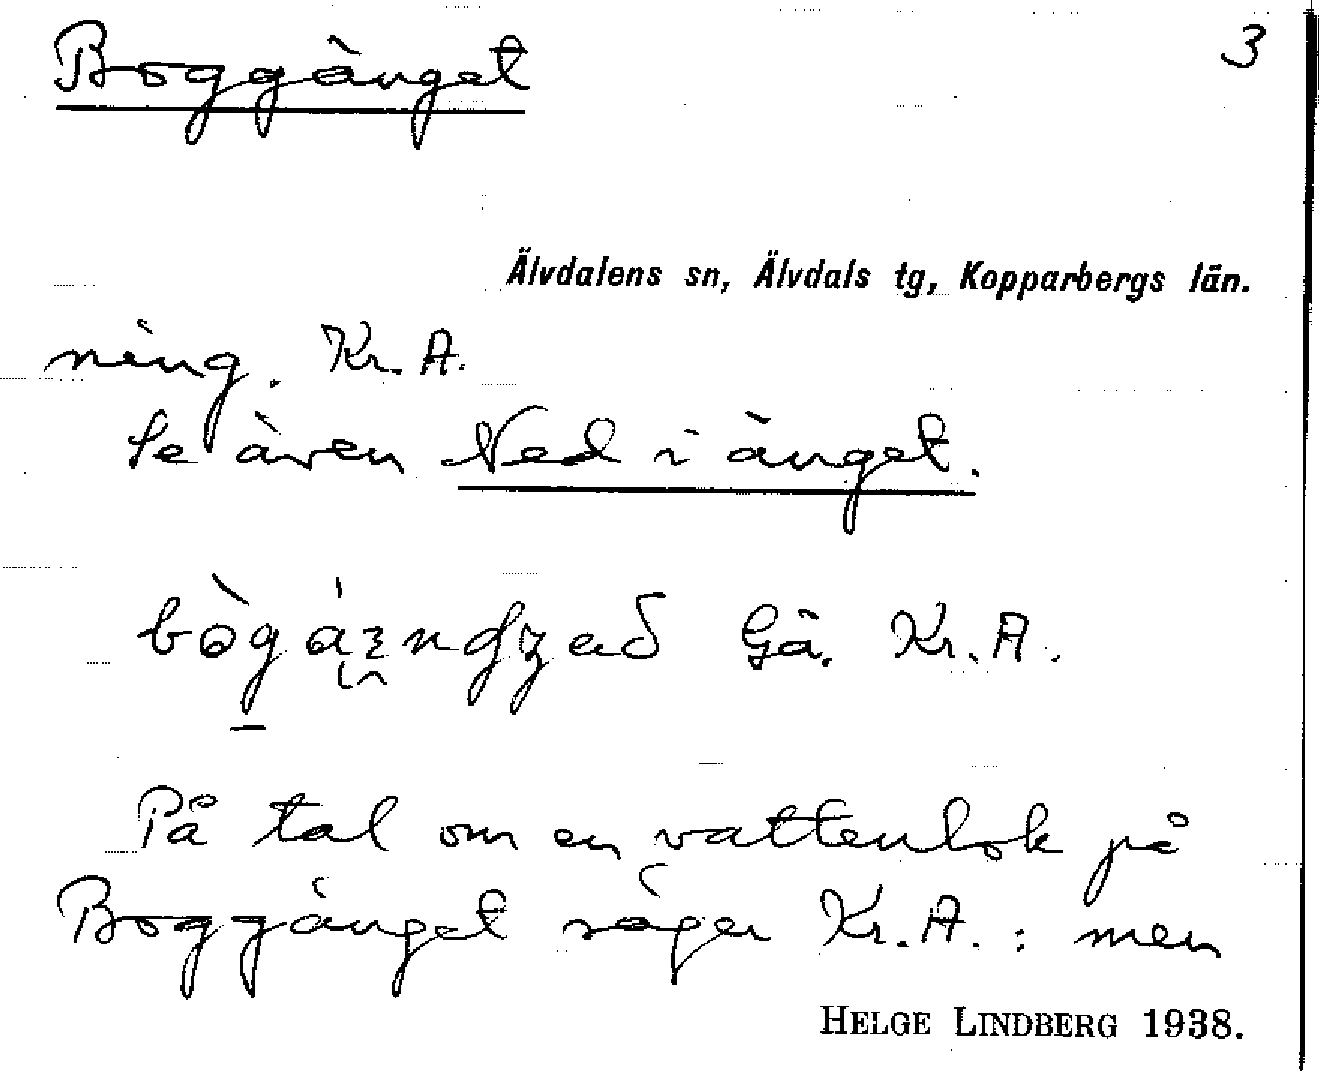 Boggänget 3
Älvdalens sn, Älvdals tg, Kopparbergs län.
ning. Kr. A.
Se även Ned i änget.
Gä. Kr. A.
På tal om en vattenhok på
Boggänget säger Kr. A. : men
HELGE LINDBERG 1938.